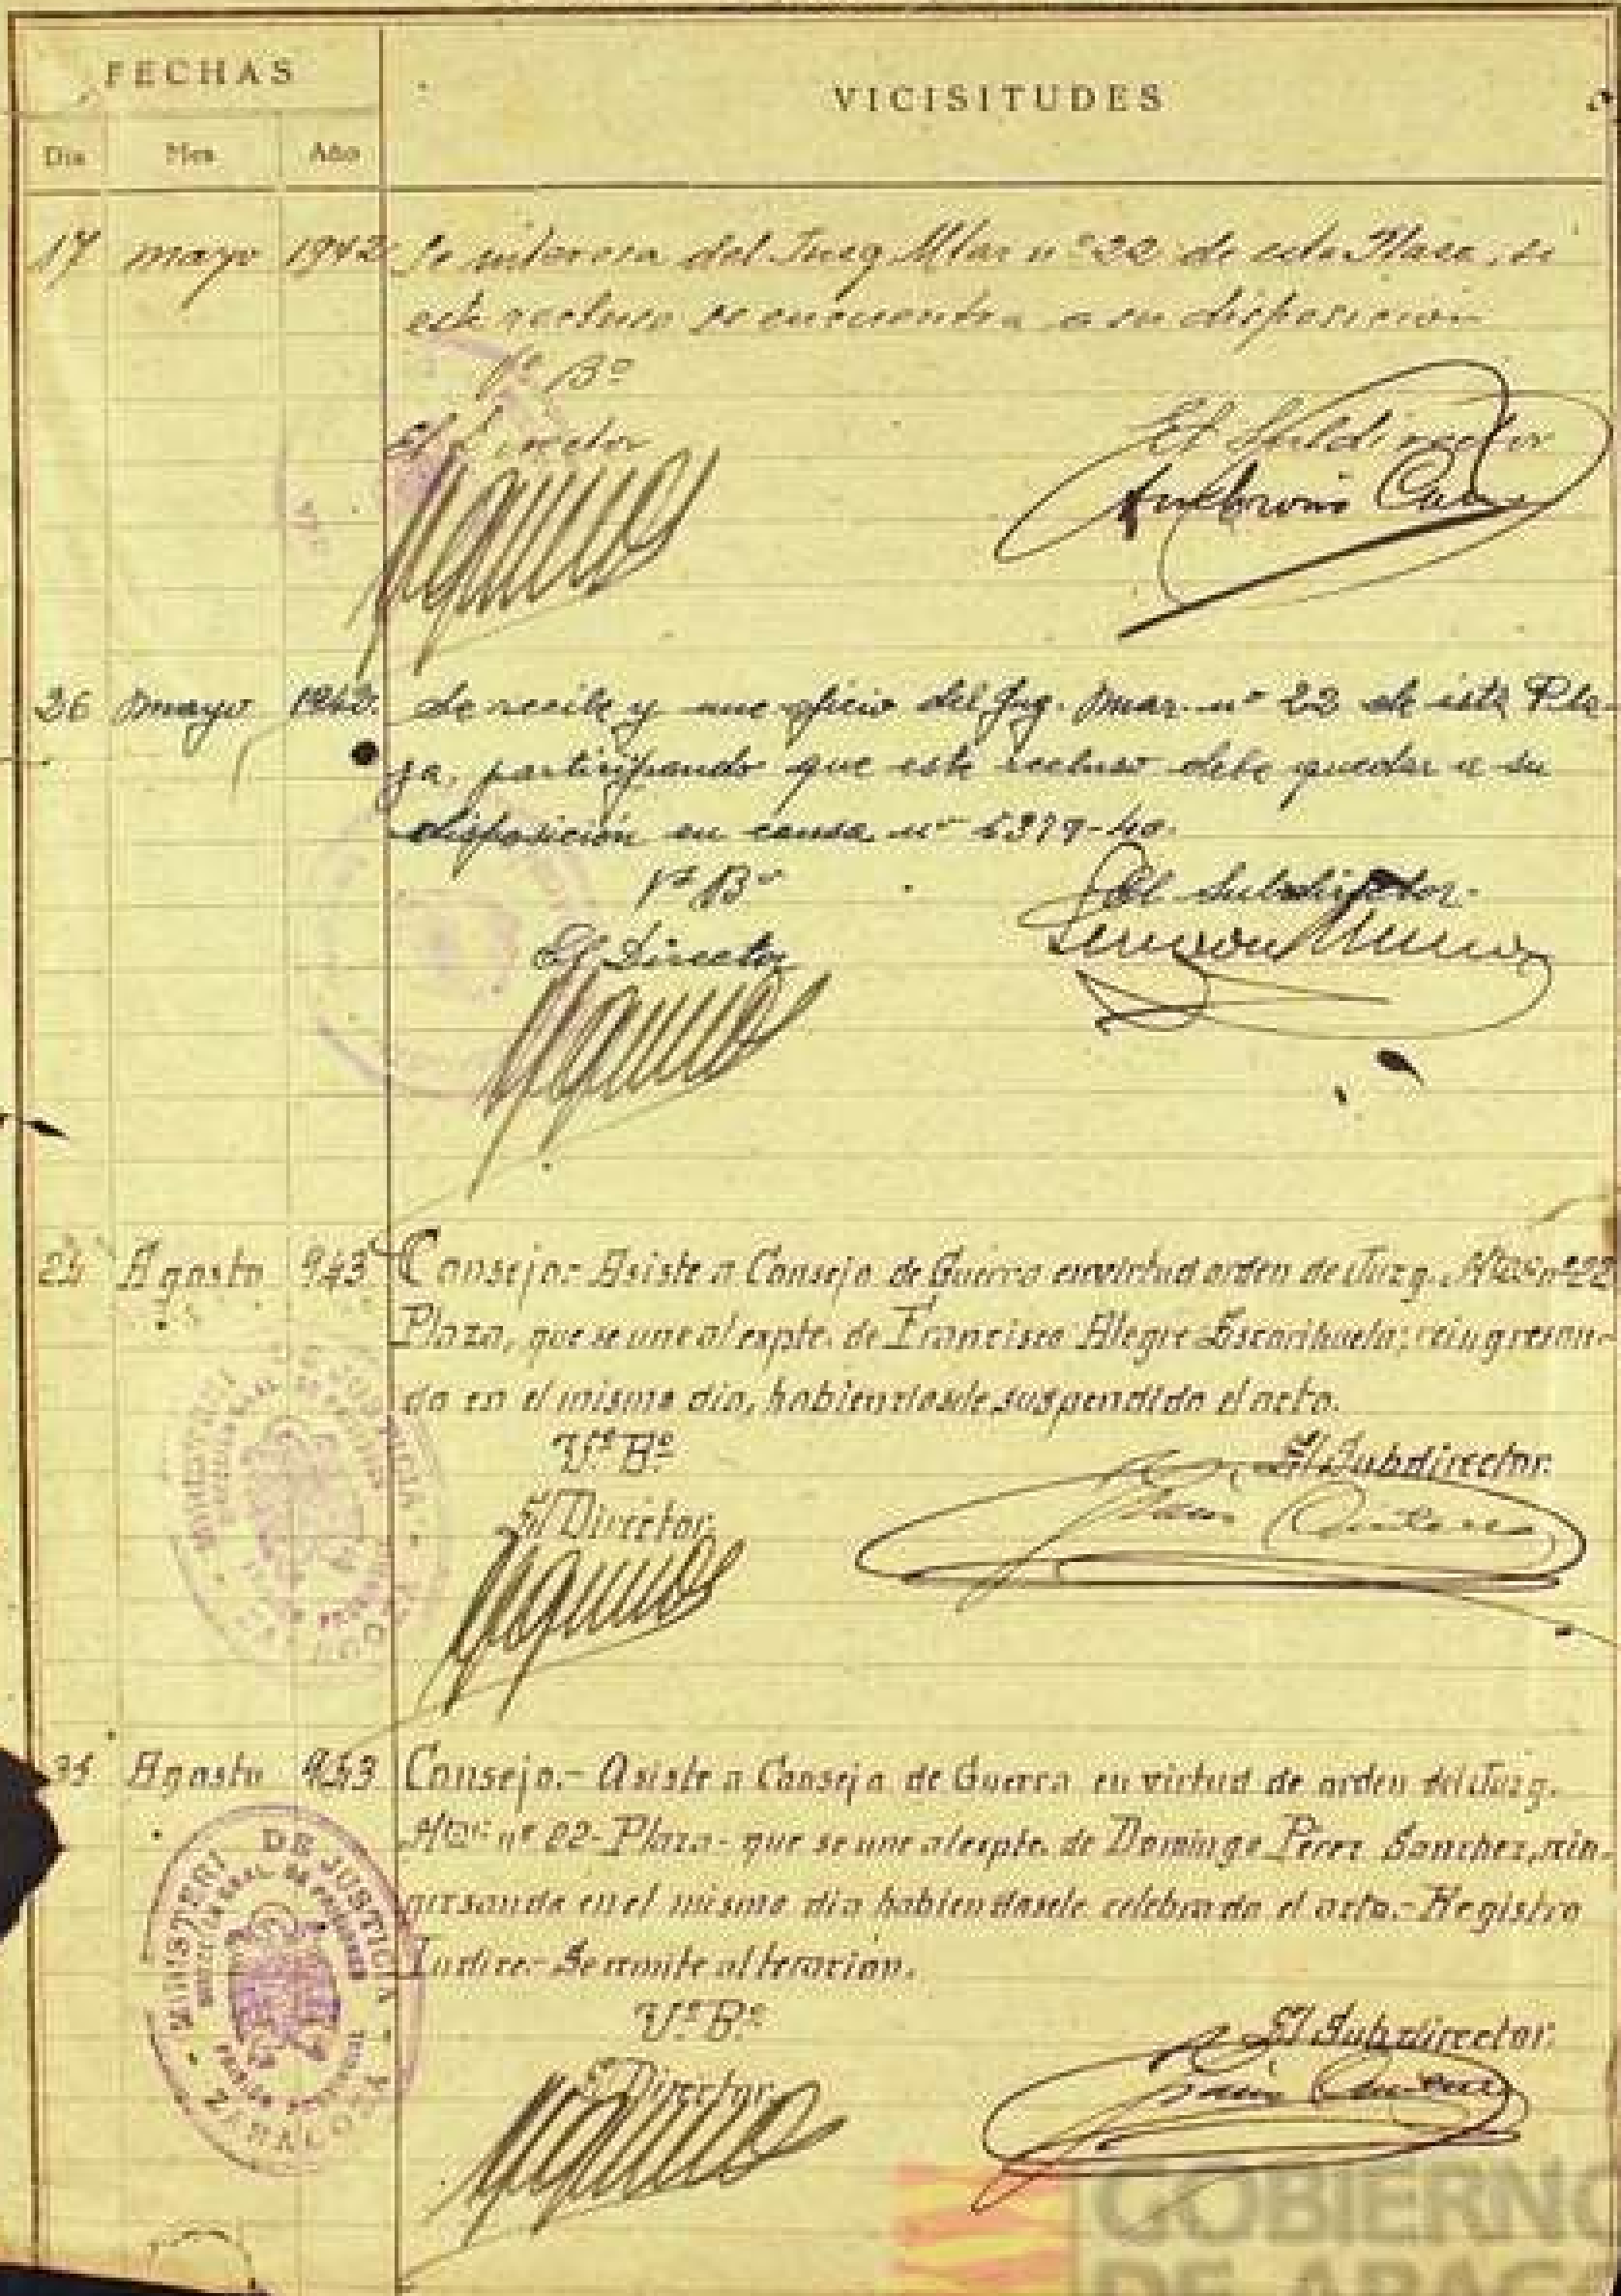 FECHAS
VICISITUDES
Dia Mes Año
17 mayo 1942 Se interesa del Juzg Mlar nº 22 de esta Plaza, si
este recluso se encuentra a su disposicion
Vº Bº
El Director
El Subdirector
26 mayo 1942. Se recibe y une oficio del Juz. Mar. nº 22 de esta Pla-
za, participando que este recluso debe quedar a su
disposición en causa nº 5379-40.
Vº Bº
El Subdirector.
El Director
Agosto 943 Consejo.- Asiste a Consejo de Guerra en virtud orden de Juzg. Mtar nº 22
Plaza, que se une al expte. de Francisco Alegre Escorihuela; reingresan-
do en el mismo dia, habiendosele suspendido el acto.
Vº Bº
El Subdirector.
El Director
31 Agosto 943 Consejo.- Asiste a Consejo de Guerra en virtud de orden del Juzg.
Mtar nº 22-Plaza- que se une al expte. de Domingo Pérez Sanchez, rein-
gresando en el mismo dia habiendosele celebrado el acto.- Registro
Indice.- Se remite alteración.
Vº Bº
El Subdirector.
El Director
MINISTERI DE JUSTICIA
DIRECCION GENERAL DE PRISIONES
PRISION
ZARAGOZA
GOBIERNO
DE ARAG